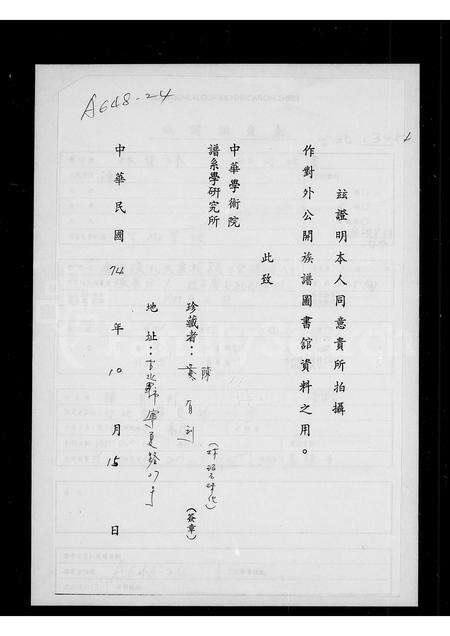 A648-24
茲證明本人同意貴所拍攝
作對外公開族譜圖書舘資料之用。
此致
中華學術院
譜系學研究所
珍藏者：陳 有 (簽章)
地址：市寧夏路 07号
中華民國74年10月15日